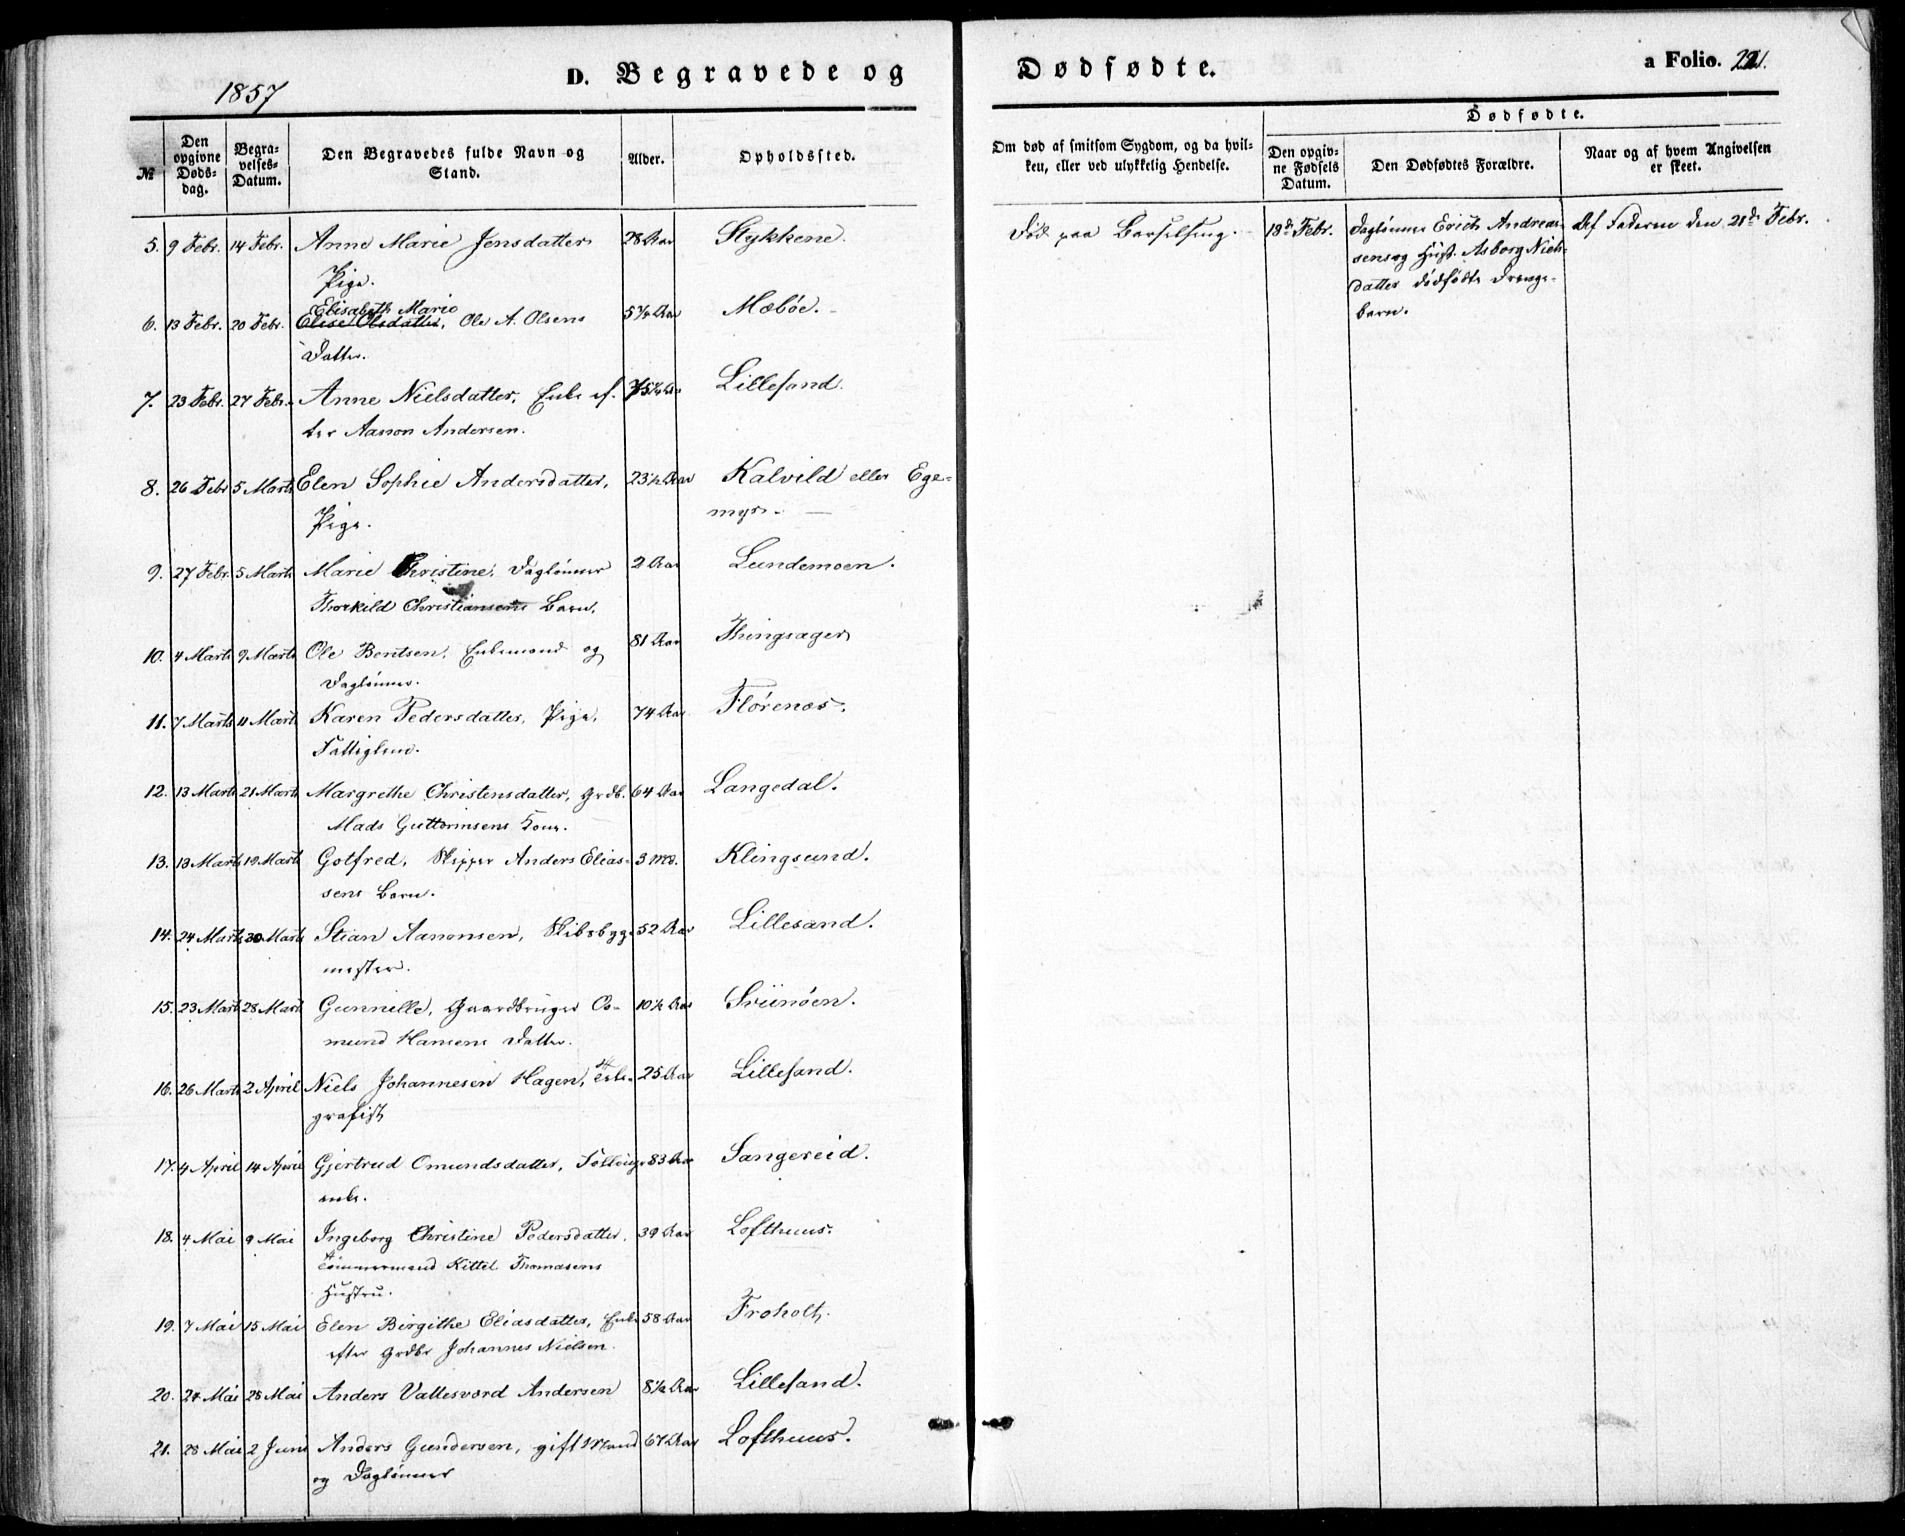 1857
D. Begravede og Dødfødte.
a Folio. 221.
№
Den opgivne Døds-dag.
Begra-velses-Datum.
Den Begravedes fulde Navn og Stand.
Alder.
Opholdssted.
Om død af smitsom Sygdom, og da hvil-ken, eller ved ulykkelig Hendelse.
Dødfødte.
Den opgiv-ne Fødsels Datum.
Den Dødfødtes Forældre.
Naar og af hvem Angivelsen er skeet.
5. 9 Febr. 14 Febr. Anne Marie Jensdatter 28 Aar Stykkene. Død paa Barselseng. 18de Febr. Daglønner Erich Andreas- Af Faderen den 21de Febr.
Pige. sens og Hust. Asborg Niels-
datter dødfødte Drenge-
barn.
Elisabeth Marie
6. 13 Febr. 20 Febr. Elise Olsdatter, Ole A. Olsens Aar Mæbøe.
Datter.
7. 23 Febr. 27 Febr. Anne Nielsdatter, Enke ef- Lillesand.
ter Aanon Andersen.
8. 26 Febr 5 Marts Elen Sophie Andersdatter, 23½ Aar Kalvild eller Ege-
Pige. myr.
9. 27 Febr. 5 Marts Marie Christine, Daglønner 2 Aar Lundemoen.
Thorkild Christiansens Barn.
10. 4 Marts 9 Marts Ole Bentsen, Enkemand og 81 Aar Thingsager
Daglønner.
11. 7 Marts 11 Marts Karen Pedersdatter, Pige, 74 Aar Flørenæs.
Fattiglem.
12. 13 Marts 21 Marts Margrethe Christensdatter, Grdb. 64 Aar Langedal.
Mads Guttormsens Kone.
13. 13 Marts 19 Marts Gotfred, Skipper Anders Elias- 3 Md. Klingsund.
sens Barn.
14. 24 Marts 30 Marts Stian Aanonsen, Skibsbyg- 52 Aar Lillesand.
mester.
15. 23 Marts 28 Marts Gunnille, Gaardbruger Os- 10½ Aar Sviinøen.
mund Hansens Datter.
16. 26 Marts 2 April Niels Johannesen Hagen, Tele- 25 Aar Lillesand.
grafist
17. 4 April 14 April Gjertrud Omundsdatter, 83 Aar Sangereid.
enke.
18. 4 Mai 9 Mai Ingeborg Christine Pedersdatter, 39 Aar Lofthuus.
Tømmermand Kittel Thomasens
Hustru.
19. 7 Mai 15 Mai Elen Birgithe Eliasdatter, Enke 58 Aar Froholt.
efter Grdbr Johannes Nielsen.
20. 24 Mai 28 Mai Anders Vallesværd Andersen 8½ Aar Lillesand.
21. 28 Mai 2 Juni Anders Gundersen, gift Mand 67 Aar Lofthuus.
og Daglønner